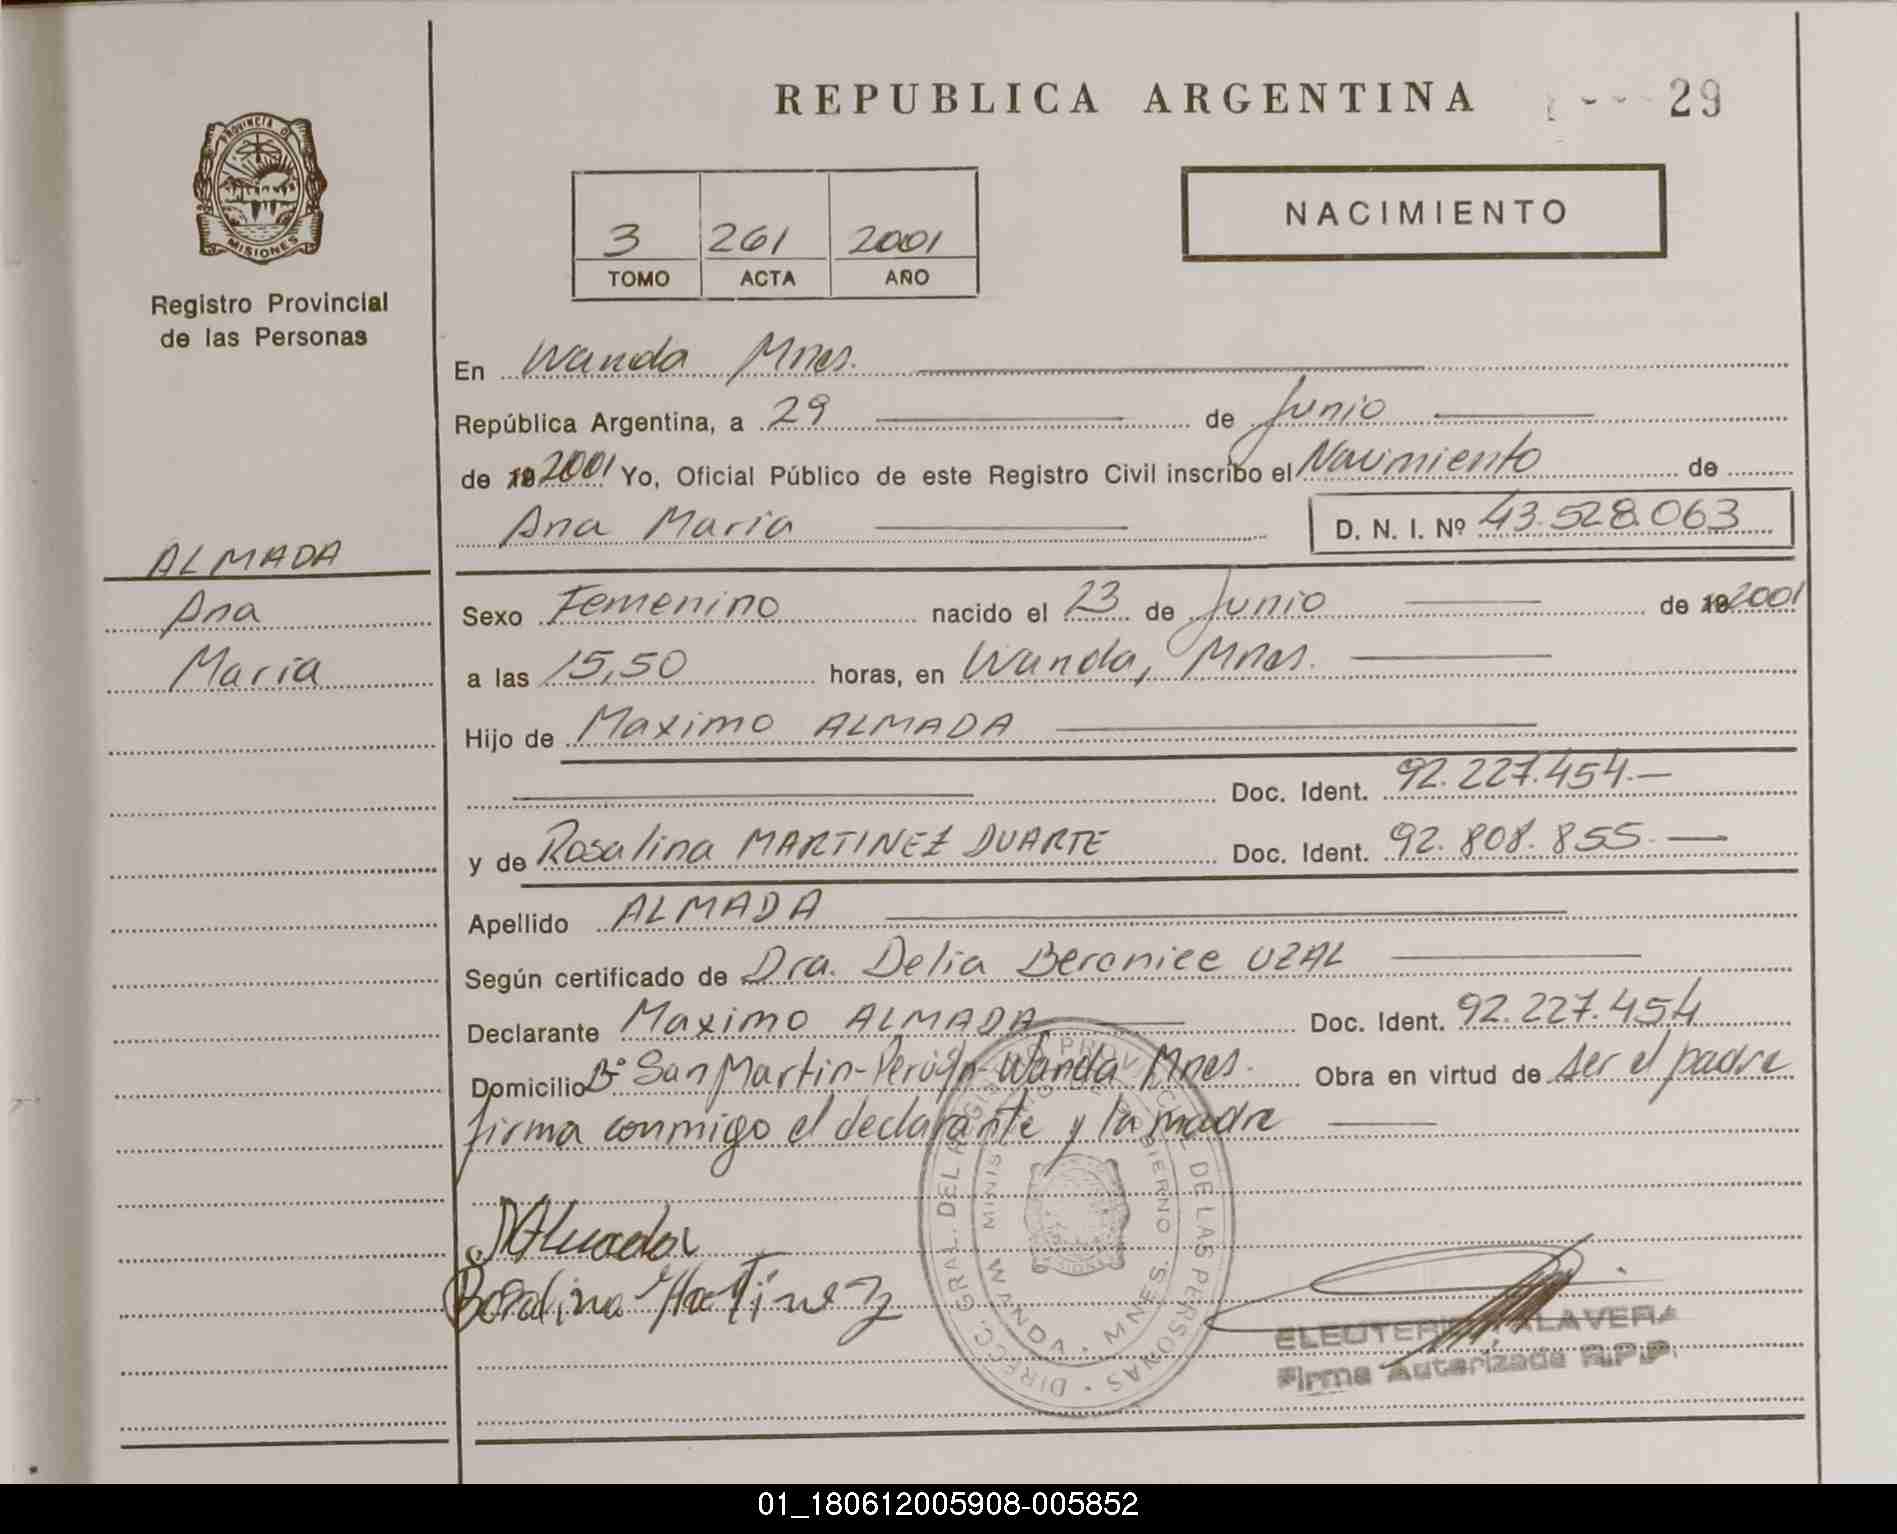 REPUBLICA ARGENTINA
29
PROVINCIA D
MISIONES
Registro Provincial
de las Personas
3 261 2001
TOMO ACTA AÑO
NACIMIENTO
En Wanda Mnes.
República Argentina, a 29 de Junio
de 19 2001 Yo, Oficial Público de este Registro Civil inscribo el Nacimiento de
Ana Maria D. N. I. Nº 43.528.063
ALMADA
Ana
Maria
Sexo Femenino nacido el 23 de Junio de 19 2001
a las 15,50 horas, en Wanda, Mnes.
Hijo de Maximo ALMADA
Doc. Ident. 92.227.454.—
y de Rosalina MARTINEZ DUARTE Doc. Ident. 92.808.855.—
Apellido ALMADA
Según certificado de Dra. Delia Bereniee UZAL
Declarante Maximo ALMADA Doc. Ident. 92.227.454
Domicilio Bº San Martin- Wanda Mnes. Obra en virtud de ser el padre
firma conmigo el declarante y la madre
MAlmada
Rosalina Martinez
DIRECC. GRAL. DEL REGISTRO PROVINCIAL DE LAS PERSONAS
MINISTERIO DE GOBIERNO
WANDA - MNES.
MISIONES
ELEUTERIO TALAVERA
Firma Autorizada R.P.P.
01_180612005908-005852